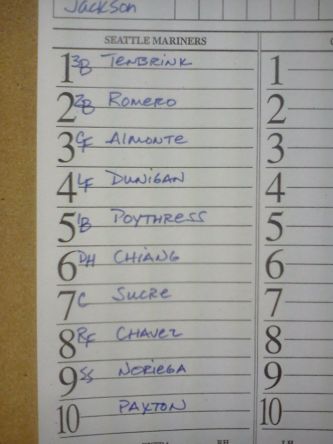 Jackson
SEATTLE MARINERS
1 3B TENBRINK 1
2 2B ROMERO 2
3 CF ALMONTE 3
4 LF DUNIGAN 4
5 1B POYTHRESS 5
6 DH CHIANG 6
7 C SUCRE 7
8 RF CHAVEZ 8
9 SS NORIEGA 9
10 PAXTON 10